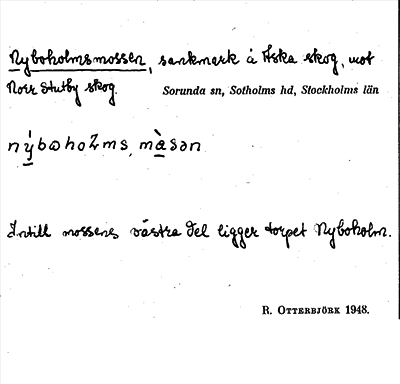 Nyboholmsmossen, sankmark å Äska skog, mot
Norr Stutby skog
Sorunda sn, Sotholms hd, Stockholms län
Intill mossens västra del ligger torpet Nyboholm.
R. OTTERBJÖRK 1948.